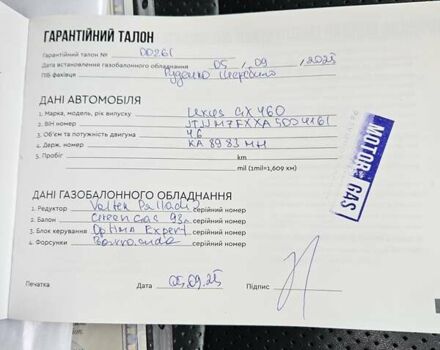 ГАРАНТІЙНИЙ ТАЛОН
Гарантійний талон № 00261
Дата встановлення газобалонного обладнання 05 / 09 / 2025
ПІБ фахівця Руденко
ДАНІ АВТОМОБІЛЯ
1. Марка, модель, рік випуску Lexus GX 460
2. ВІН номер JTJJM7FXXA5004161
3. Об'єм та потужність двигуна 4,6
4. Держ. номер КА 8983 МН
5. Пробіг km
mil (1mil=1,609 км)
MOTOR GAS
ДАНІ ГАЗОБАЛОННОГО ОБЛАДНАННЯ
1. Редуктор Valtek Palladio серійний номер
2. Балон GreenGas 93л серійний номер
3. Блок керування Optima Expert серійний номер
4. Форсунки Barracuda серійний номер
Печатка Дата 05.09.25 Підпис